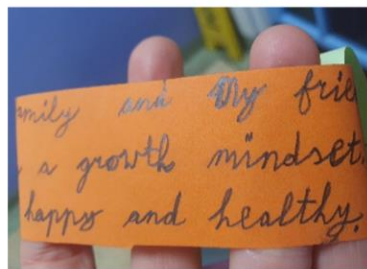 amily and My frie
a growth mindset.
happy and healthy.